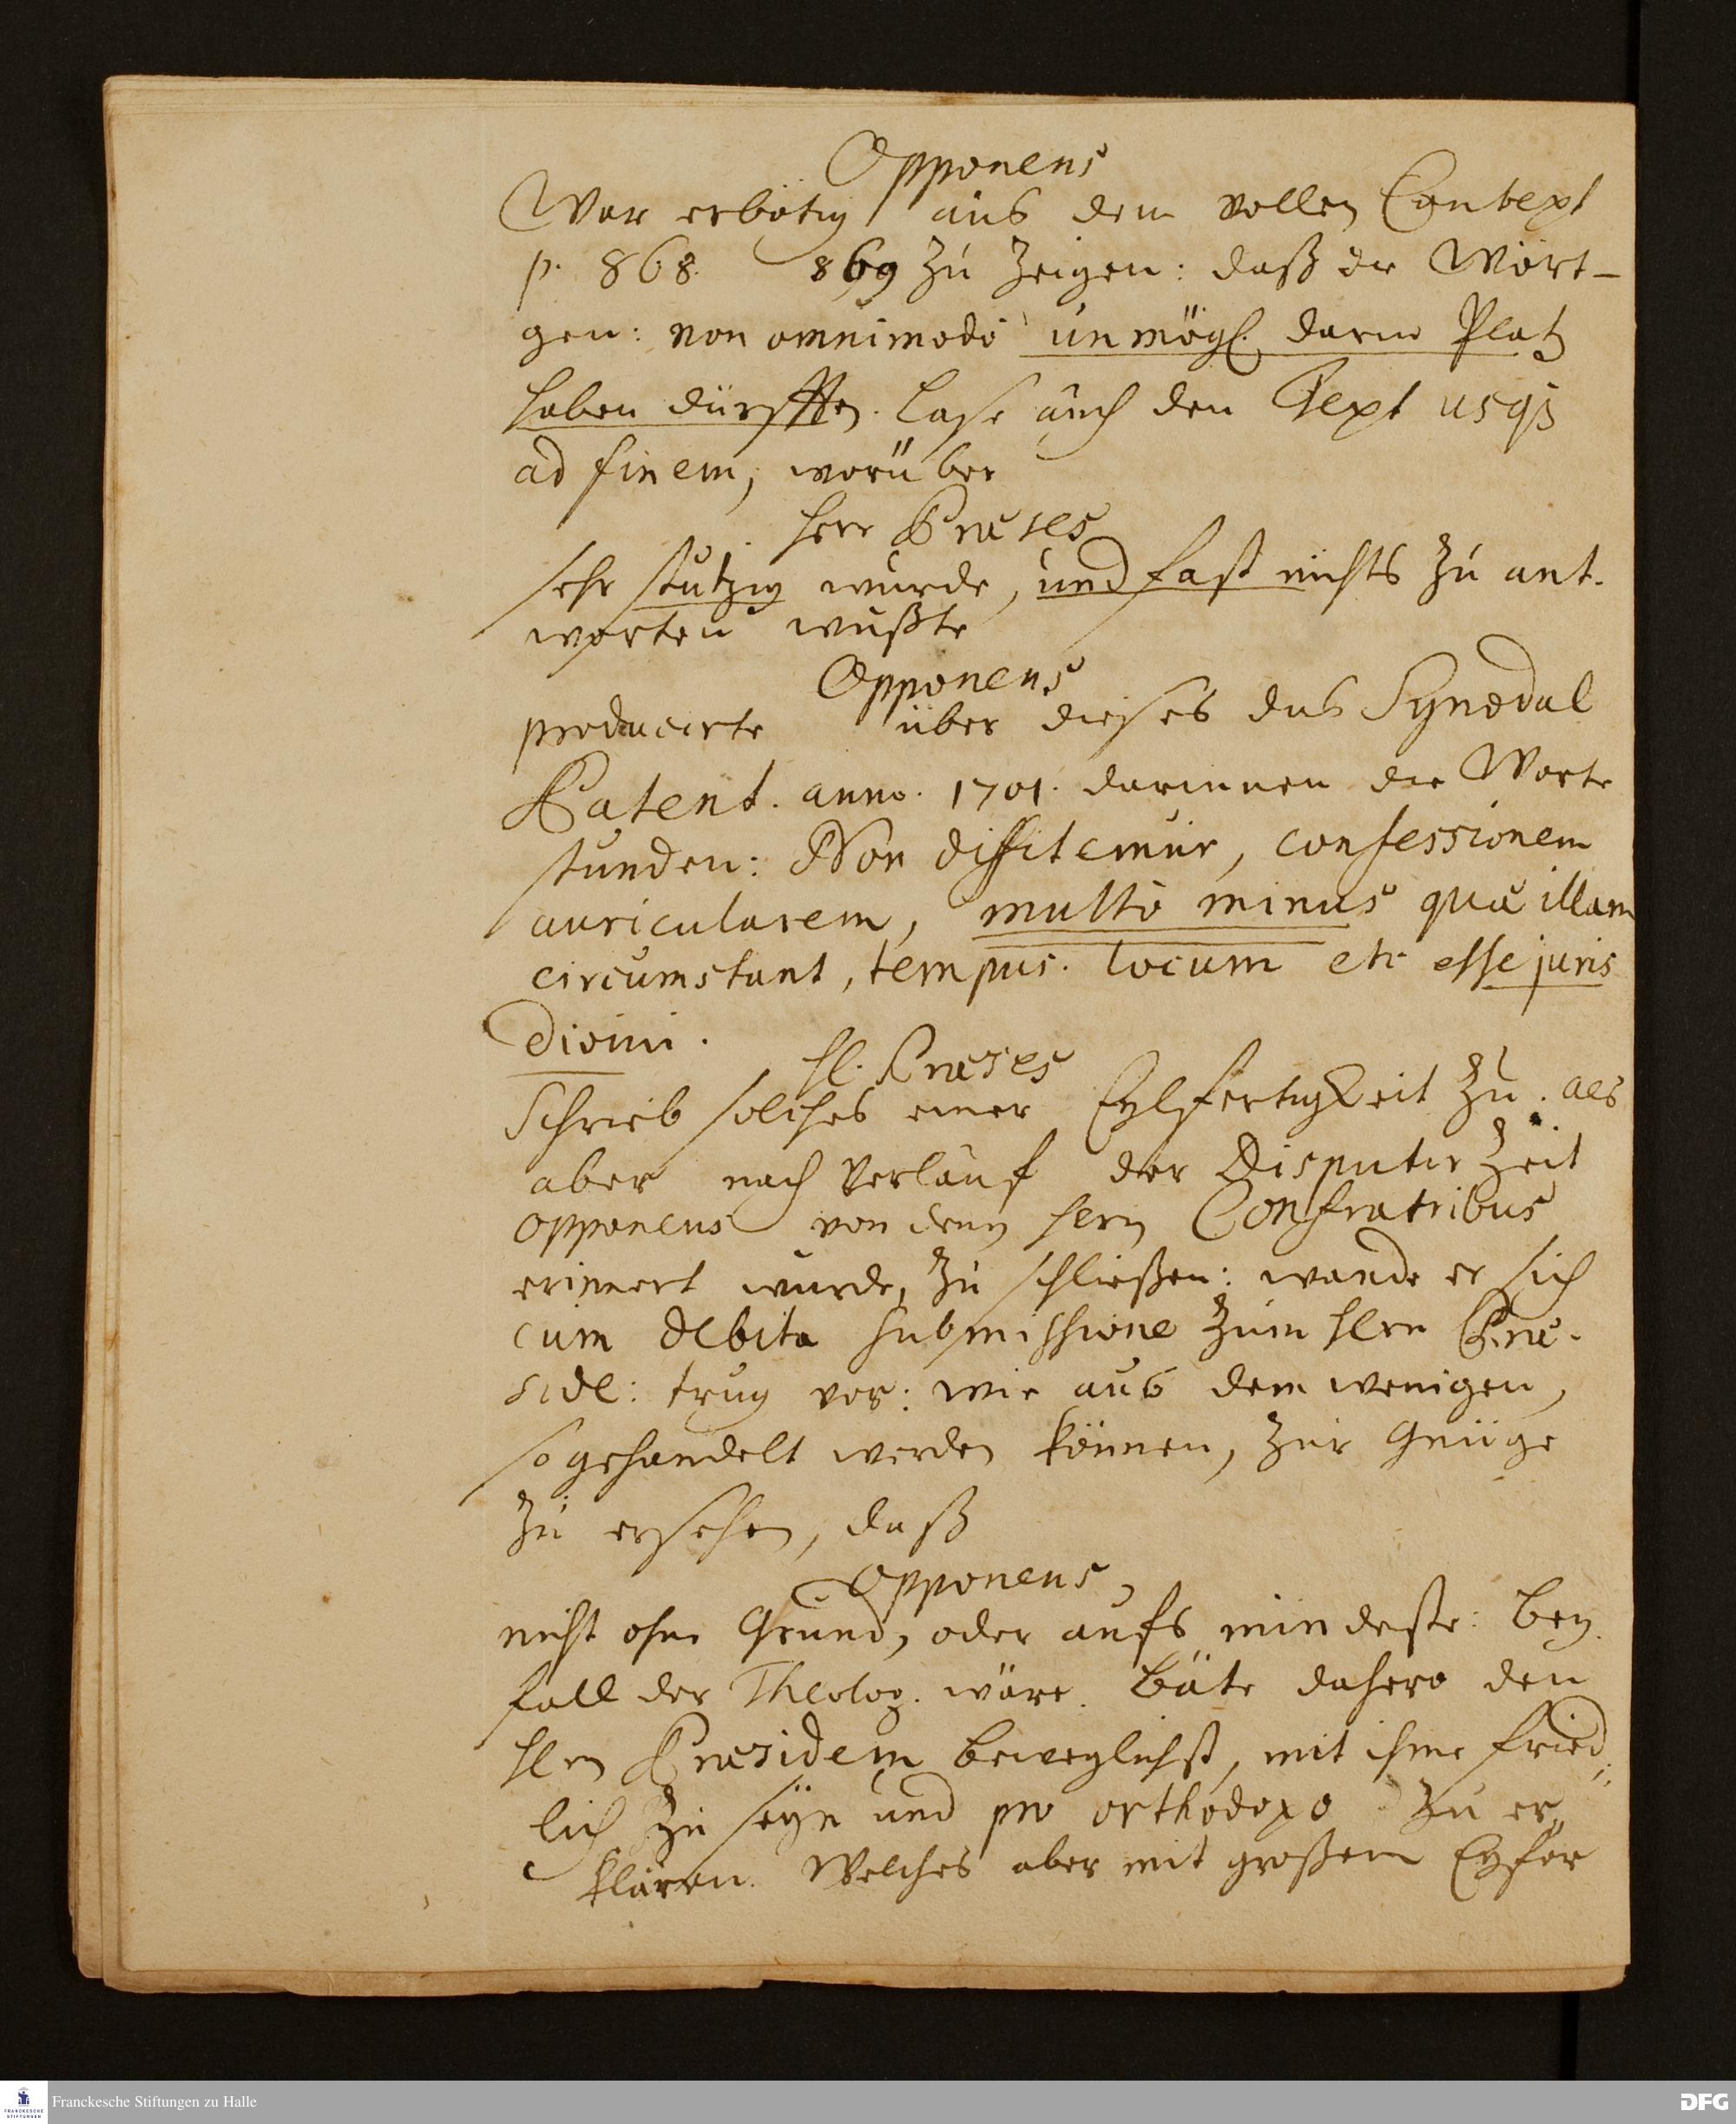 Opponens
War erbötig aus dem vollen Context
p. 868. 869 zu zeigen: daß die Wört-
gen: non omnimodo unmögl. darin Platz
haben dürfften. Lase auch den Text usqȝ
ad finem, worüber
Herr Præses
sehr stutzig wurde, und fast nichts zu ant-
worten wußte
Opponens
producirte über dieses das Synodal
Patent. anno. 1701. darinnen die Worte
stunden: Non diffitemur, confessionem
auricularem, multo minus quæ illam
circumstant, tempus. locum etc esse juris
divini.
H. Præses
Schrieb solches einer Eylfertigkeit zu. als
aber nach Verlauf der Disputir Zeit
Opponens von denen Herrn Confratribus
erinnert wurde, zu schließen: wande er sich
cum debita submissione zum Hern Præ-
side: trug vor: wie aus dem wenigen,
so gehandelt werden können, zur Gnüge
zu ersehen, daß
Opponens,
nicht ohne Grund, oder aufs mindeste: Bey
fall der Theolog. wäre. Bäte dahero den
Hern Præsidem beweglichst, mit ihme fried
lich zu seyn und pro orthodoxo zu er
klären. Welches aber mit großem Eyfer
Franckesche Stiftungen zu Halle
FRANCKESCHE STIFTUNGEN
DFG